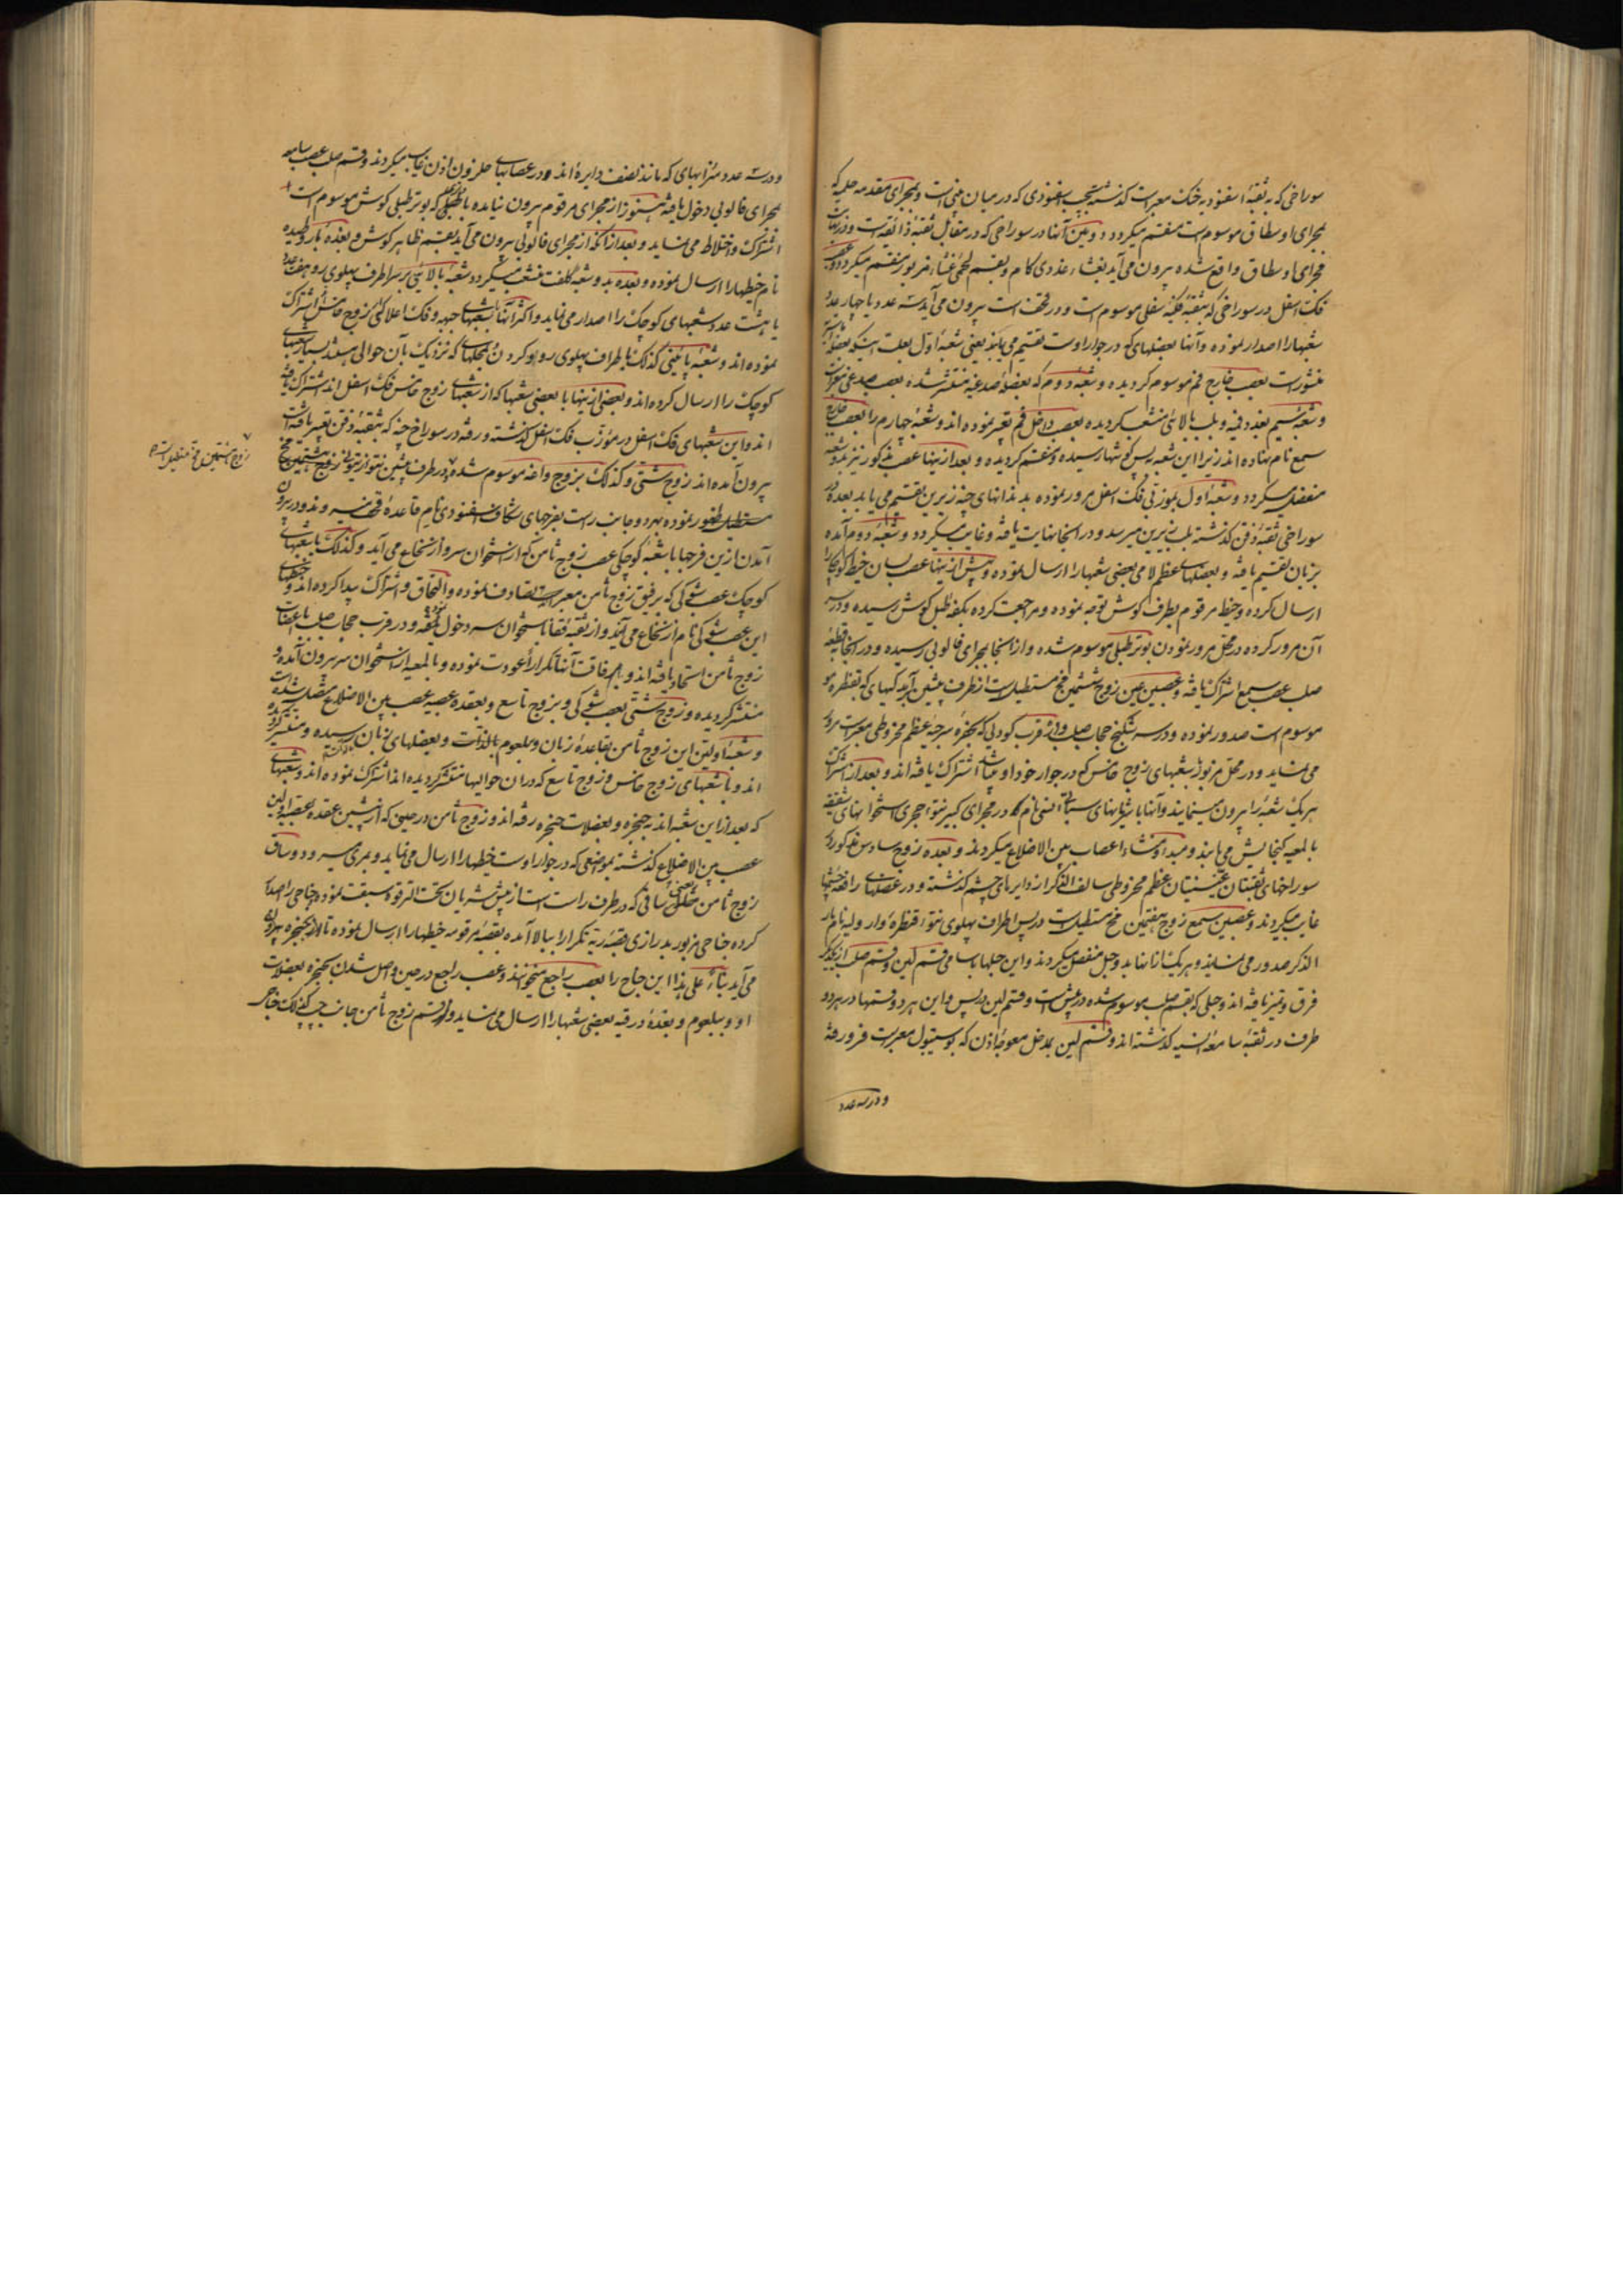 سوراخی که به ثقبهٔ اسفنودیه خنک معبر است کذشته بجیب اسفنودی که در میان بینی است و بمجرای مقدمه حلمیه که
بمجرای اوسطاق موسوم است منقسم میکردد و مین آنها در سوراخی که در مقابل ثقبهٔ ذائقه است و در نهایت
مجرای اوسطاق واقع شده بیرون می آید بغشاء غددی کام و بقسم لحمی غشاء مزبور منقسم میکردد و عصب
فک اسفل در سوراخی که بثقبهٔ فکیهٔ سفلی موسوم است و در تحت است بیرون می آید سه عدد یا چهار عدد
شعبها را اصدار نموده و آنها بعضلهای که در جوار اوست تقسیم می یابند یعنی شعبهٔ اول بعلت اینکه بعضلهٔ
منشور است بعصب خارج فم موسوم کردیده و شعبهٔ دوم که بعضلهٔ صدغیه منتشر شده بعصب صدغی معبر است
و شعبهٔ سیم بغدد فمیه و بلب بالائی منشعب کردیده بعصب داخل فم تعبیر نموده اند و شعبهٔ چهارم را بعصب خارج
سمع نام نهاده اند زیرا این شعبه پس کوشها رسیده و منقسم کردیده و بعد از اینها عصب مذکور نیز بدو شعبه
منفصل میکردد و شعبهٔ اول بموزنی فک اسفل مرور نموده بدندانهای چنهٔ زیرین تقسیم می یابد بعده در
سوراخی ثقبهٔ ذقن کذشته بلب زیرین میرسد و در انجا نهایت یافته و غایب میکردد و شعبهٔ دوم آمده
بزبان تقسیم یافته و بعضلهای عظم لامی بعضی شعبها را ارسال نموده و پیش از اینها عصب لسان خیط کوچک را
ارسال کرده و خیط مرقوم بطرف کوش توجه نموده و مراجعت کرده بکفهٔ طبل کوش رسیده و در سر
آن مرور کرده در محل مرور نمودن بوتر طبلی موسوم شده و از انجا بمجرای فالوپی رسیده و در انجا بقطعهٔ
صلب عصب سمع اشتراک یافته و عصبین عین زوج ششمین مخ مستطیل است از طرف پیشین آبدکیهای که بقنطره
موسوم است صدور نموده و در سه شکنج حجاب صلب و از قرب کودلی که بحفرهٔ سرجیهٔ عظم مخروطی معبر است مرور
می نماید و در محل مزبور بشعبهای زوج خامس که در جوار خود او باشد اشتراک یافته اند و بعد از اشتراک
هر یک شعبه را بیرون مینمایند و آنها با شریانهای سباتی انسی نام که در مجرای کبیر نتوء حجری استخوانهای شقیقه
بالمعیه کنجایش می یابند و مبداء و منشاء اعصاب بین الاضلاع میکردند و بعده زوج سادس مذکور در
سوراخهای ثقبتان عینیتان عظم مخروطی سالف الذکر از دایرهای چشم کذشته و در عضلهای رافعهٔ چشمها
غایب میکردند و عصبین سمع زوج هفتمین مخ مستطیل است در پس اطراف پهلوی نتوء قنطرهٔ وارولیه نام مار
الذکر صدور می نمایند و هر یک از انها بدو حبل منفصل میکردند و این حبلها باسامی قسم لین و قسم صلب از یکدیکر
فرق و تمیز یافته اند و حبلی که بقسم صلب موسوم شده در پیش است و قسم لین در پس و این هر دو قسمها در هر دو
طرف در ثقبهٔ سامعهٔ انسیه کذشته اند و قسم لین بمدخل معوجهٔ اذن که بوستیبول معبر است فرو رفته
و در سه عدد
و در سه عدد میزابهای که مانند نصف دایره اند و در عصابهای حلزون اذن غایب میکردند و قسم صلب عصب سامعه
بمجرای فالوپی دخول یافته هنوز از مجرای مرقوم بیرون نیامده با خیط که بوتر طبلی کوش موسوم است
اشتراک و اختلاط می نماید و بعد از انکه از مجرای فالوپی بیرون می آید بقسم ظاهر کوش و بغدهٔ پاروطیده
نام خیطها را ارسال نموده و بعده بدو شعبهٔ کلفت منشعب میکردد شعبهٔ بالائی بر سر اطراف پهلوی رو هفت عدد
یا هشت عدد شعبهای کوچک را اصدار می نماید و اکثر آنها بشعبهای جبهه و فک اعلا کی زوج خامس اشتراک
نموده اند و شعبهٔ پائینی کذلک باطراف پهلوی رو و بکردن بمحلهای که نزدیک بآن حوالی باشد بسیار شعبهای
کوچک را ارسال کرده اند و بعضی از اینها با بعضی شعبها که از شعبهای زوج خامس فک اسفل اند اشتراک یافته
اند و این شعبهای فک اسفل در موزب فک اسفل کذشته و رفته در سوراخ چنه که بثقبهٔ ذقن تعبیر یافته است
بیرون آمده اند زوج شتی و کذلک بزوج واعه موسوم شده در طرف پیشین نتوء زیتونی زوج هشتمین مخ
زوج هشتمین مخ مستطیل است
مستطیل ظهور نموده بهر دو جانب راست بفرجهای شکاف اسفنودی نام قاعدهٔ قحف میروند و در بیرون
آمدن از این فرجها با شعبهٔ کوچکی عصب زوج ثامن که از استخوان سر و از نخاع می آید و کذلک با شعبهای
کوچک عصب شوکی که برفیق زوج ثامن معبر است تصادف نموده و التحاق و اشتراک پیدا کرده اند و خیطهای
این عصب شوکی نام از نخاع می آید و از ثقبهٔ قفا باستخوان سر دخول یافته و در قرب حجاب صلب باعصاب
زوج ثامن اتحاد یافته اند و بهم رفاقت آنها تکرارا عودت نموده و بالمعیه از استخوان سر بیرون آمده و
منتشر کردیده و زوج شتی بعصب شوکی و بزوج تاسع و بعقدهٔ عصبیهٔ عصب بین الاضلاع متصل شده است
و شعبهٔ اولین این زوج ثامن بقاعدهٔ زبان و بلعوم بالذات و بعضلهای زبان رسیده و منتشر کردیده
اند و با شعبهای زوج خامس و زوج تاسع که در ان حوالیها منتشر کردیده اند اشتراک نموده اند و شعبهای
که بعد از این شعبه اند به حنجره و بعضلات حنجره رفته اند و زوج ثامن در حینی که از پیشین عقدهٔ عصبیهٔ اولین
عصب بین الاضلاع کذشته بموضعی که در جوار اوست خیطها را ارسال می نماید و بمری میرود و ساق
زوج ثامن یعنی ساقی که در طرف راست است از پیش شریان تحت الترقوه سبقت نموده جناحی را اصدار
کرده جناحی مزبور بدرازی قصبهٔ ریه تکرارا ببالا آمده بقصبهٔ مرقومه خیطها را ارسال نموده تا بحنجره بیرون
می آید بناء علی هذا این جناح را بعصب راجع میخوانند و عصب راجع در حین واصل شدن بحنجره بعضلات
او و ببلعوم و بغدهٔ درقیه بعضی شعبها را ارسال می نماید و از قسم زوج ثامن جانب چپ کذلک جناحی